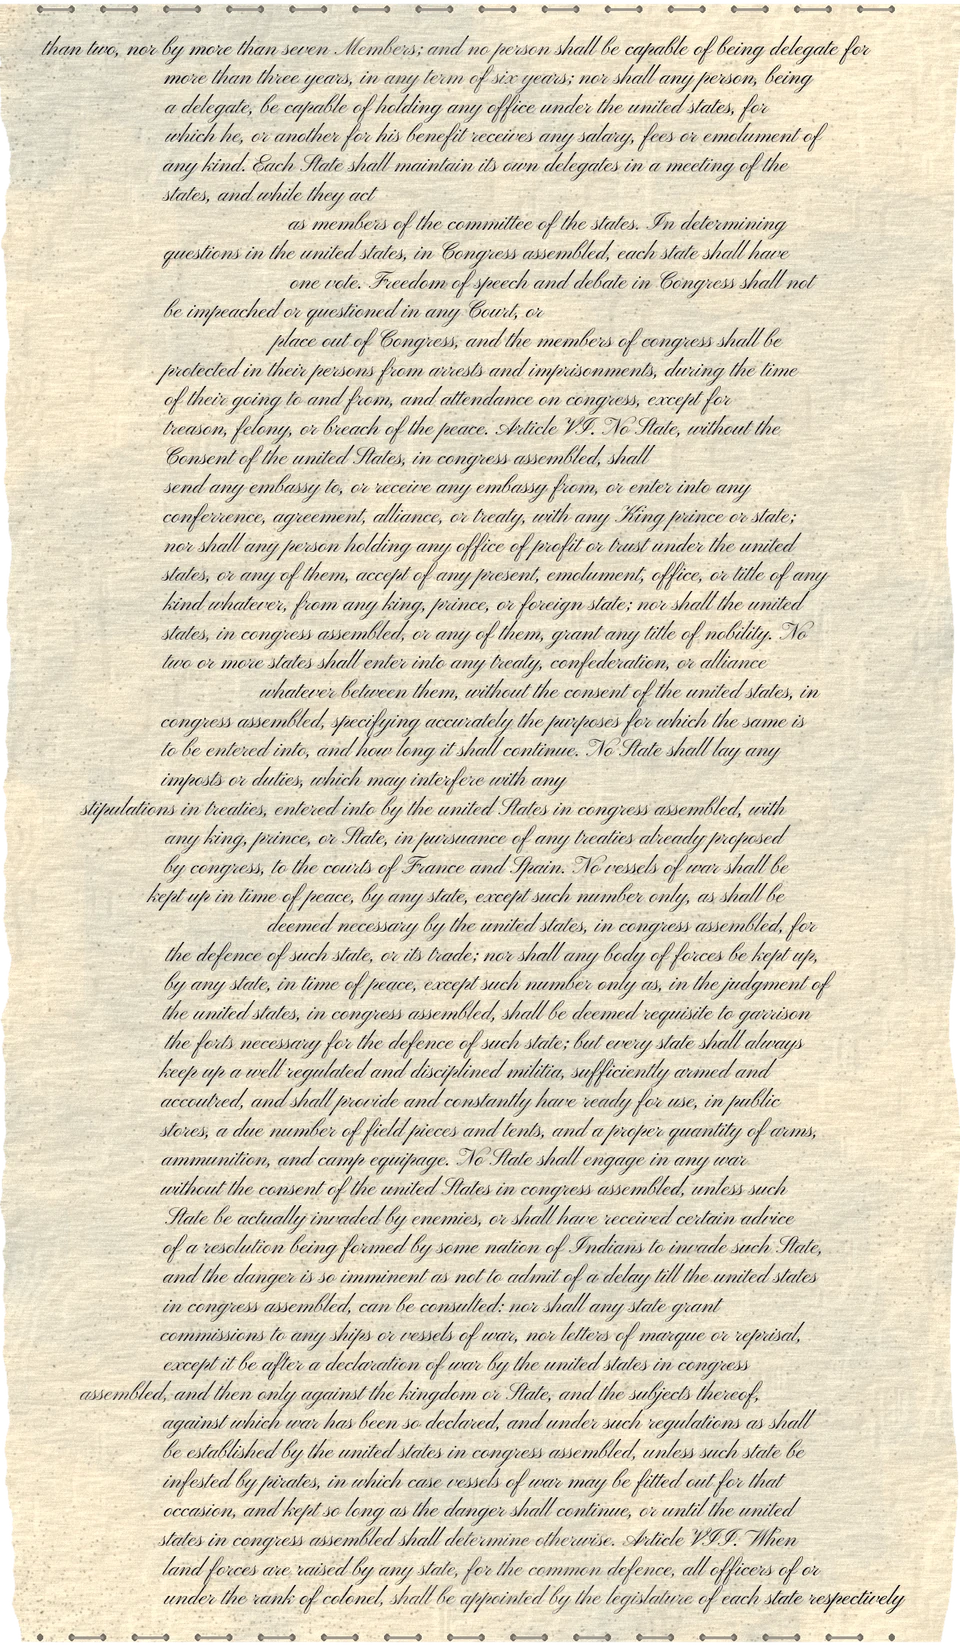 than two, nor by more than seven Members; and no person shall be capable of being delegate for
more than three years, in any term of six years; nor shall any person, being
a delegate, be capable of holding any office under the united states, for
which he, or another for his benefit receives any salary, fees or emolument of
any kind. Each State shall maintain its own delegates in a meeting of the
states, and while they act
as members of the committee of the states. In determining
questions in the united states, in Congress assembled, each state shall have
one vote. Freedom of speech and debate in Congress shall not
be impeached or questioned in any Court, or
place out of Congress, and the members of congress shall be
protected in their persons from arrests and imprisonments, during the time
of their going to and from, and attendance on congress, except for
treason, felony, or breach of the peace. Article VI. No State, without the
Consent of the united States, in congress assembled, shall
send any embassy to, or receive any embassy from, or enter into any
conferrence, agreement, alliance, or treaty, with any King prince or state;
nor shall any person holding any office of profit or trust under the united
states, or any of them, accept of any present, emolument, office, or title of any
kind whatever, from any king, prince, or foreign state; nor shall the united
states, in congress assembled, or any of them, grant any title of nobility. No
two or more states shall enter into any treaty, confederation, or alliance
whatever between them, without the consent of the united states, in
congress assembled, specifying accurately the purposes for which the same is
to be entered into, and how long it shall continue. No State shall lay any
imposts or duties, which may interfere with any
stipulations in treaties, entered into by the united States in congress assembled, with
any king, prince, or State, in pursuance of any treaties already proposed
by congress, to the courts of France and Spain. No vessels of war shall be
kept up in time of peace, by any state, except such number only, as shall be
deemed necessary by the united states, in congress assembled, for
the defence of such state, or its trade; nor shall any body of forces be kept up,
by any state, in time of peace, except such number only as, in the judgment of
the united states, in congress assembled, shall be deemed requisite to garrison
the forts necessary for the defence of such state; but every state shall always
keep up a well regulated and disciplined militia, sufficiently armed and
accoutred, and shall provide and constantly have ready for use, in public
stores, a due number of field pieces and tents, and a proper quantity of arms,
ammunition, and camp equipage. No State shall engage in any war
without the consent of the united States in congress assembled, unless such
State be actually invaded by enemies, or shall have received certain advice
of a resolution being formed by some nation of Indians to invade such State,
and the danger is so imminent as not to admit of a delay till the united states
in congress assembled, can be consulted: nor shall any state grant
commissions to any ships or vessels of war, nor letters of marque or reprisal,
except it be after a declaration of war by the united states in congress
assembled, and then only against the kingdom or State, and the subjects thereof,
against which war has been so declared, and under such regulations as shall
be established by the united states in congress assembled, unless such state be
infested by pirates, in which case vessels of war may be fitted out for that
occasion, and kept so long as the danger shall continue, or until the united
states in congress assembled shall determine otherwise. Article VII. When
land forces are raised by any state, for the common defence, all officers of or
under the rank of colonel, shall be appointed by the legislature of each state respectively